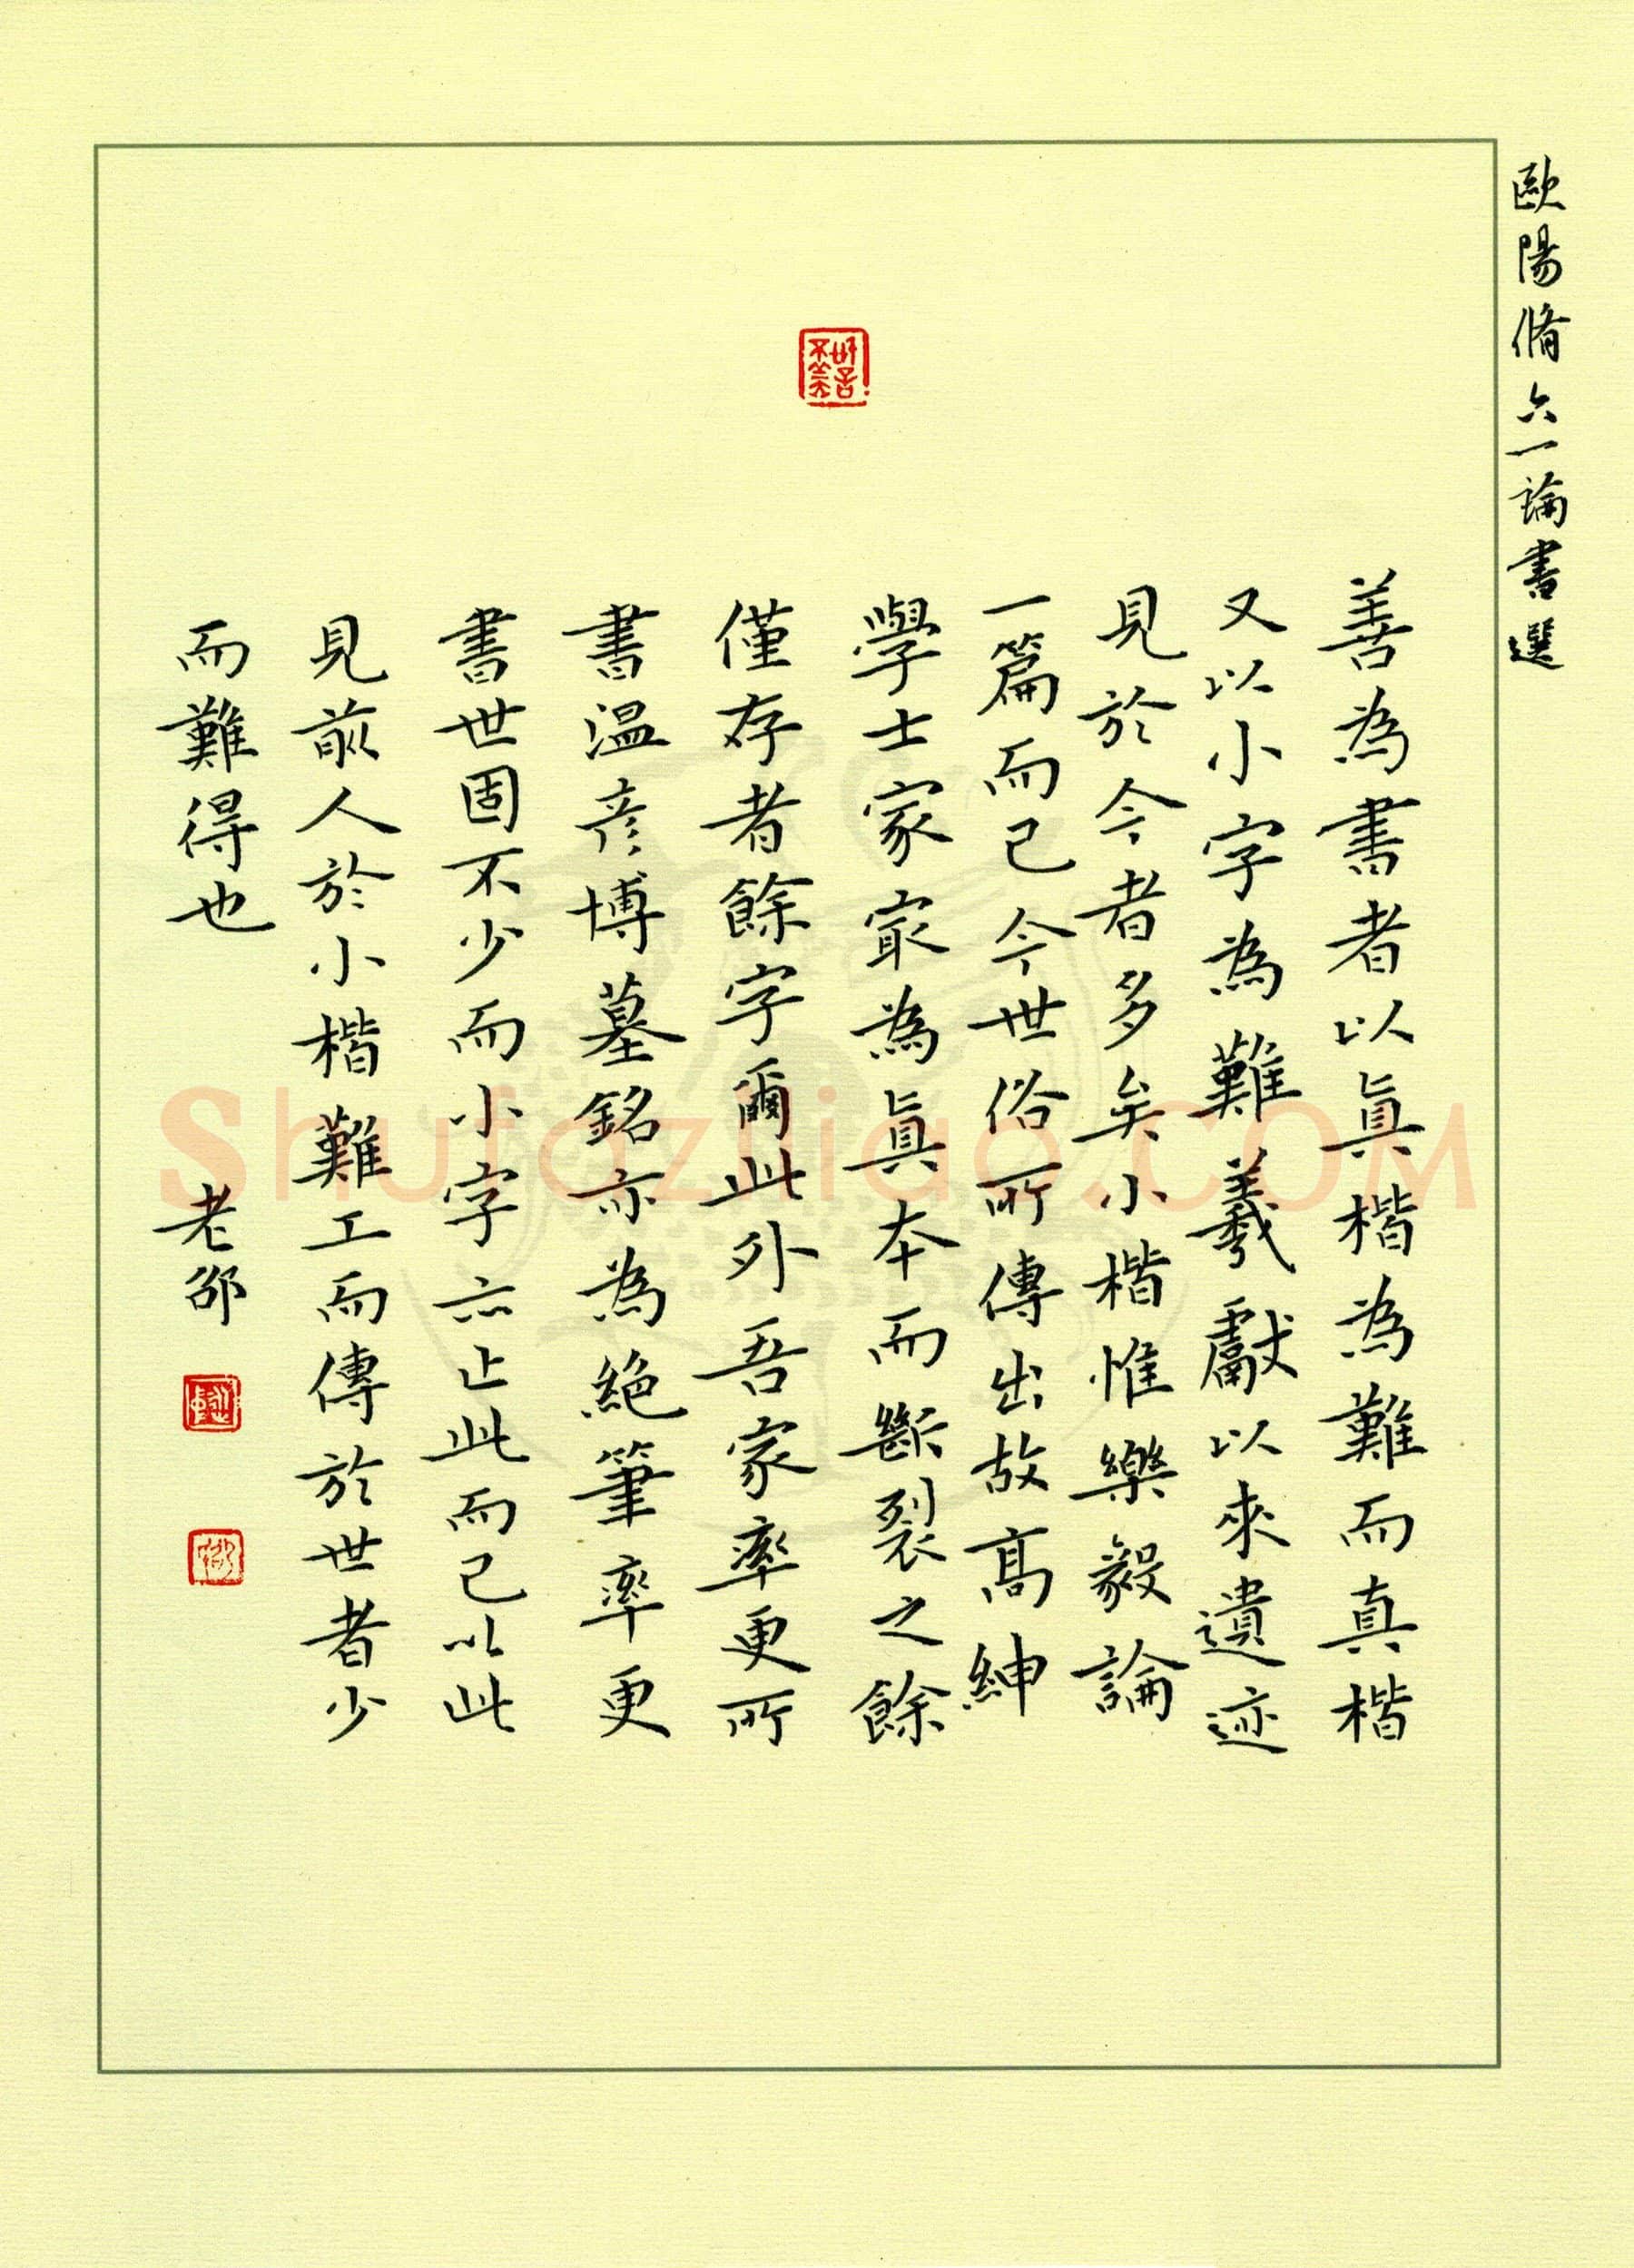 歐陽脩六一論書選
善為書者以真楷為難而真楷
又以小字為難羲獻以來遺迹
見於今者多矣小楷惟樂毅論
一篇而已今世俗所傳出故高紳
學士家寂為真本而斷裂之餘
僅存者餘字爾此外吾家率更所
書温彦博墓銘亦為絕筆率更
書世固不少而小字亦止此而已以此
見前人於小楷難工而傳於世者少
而難得也
老邵
Shufaziliao.COM